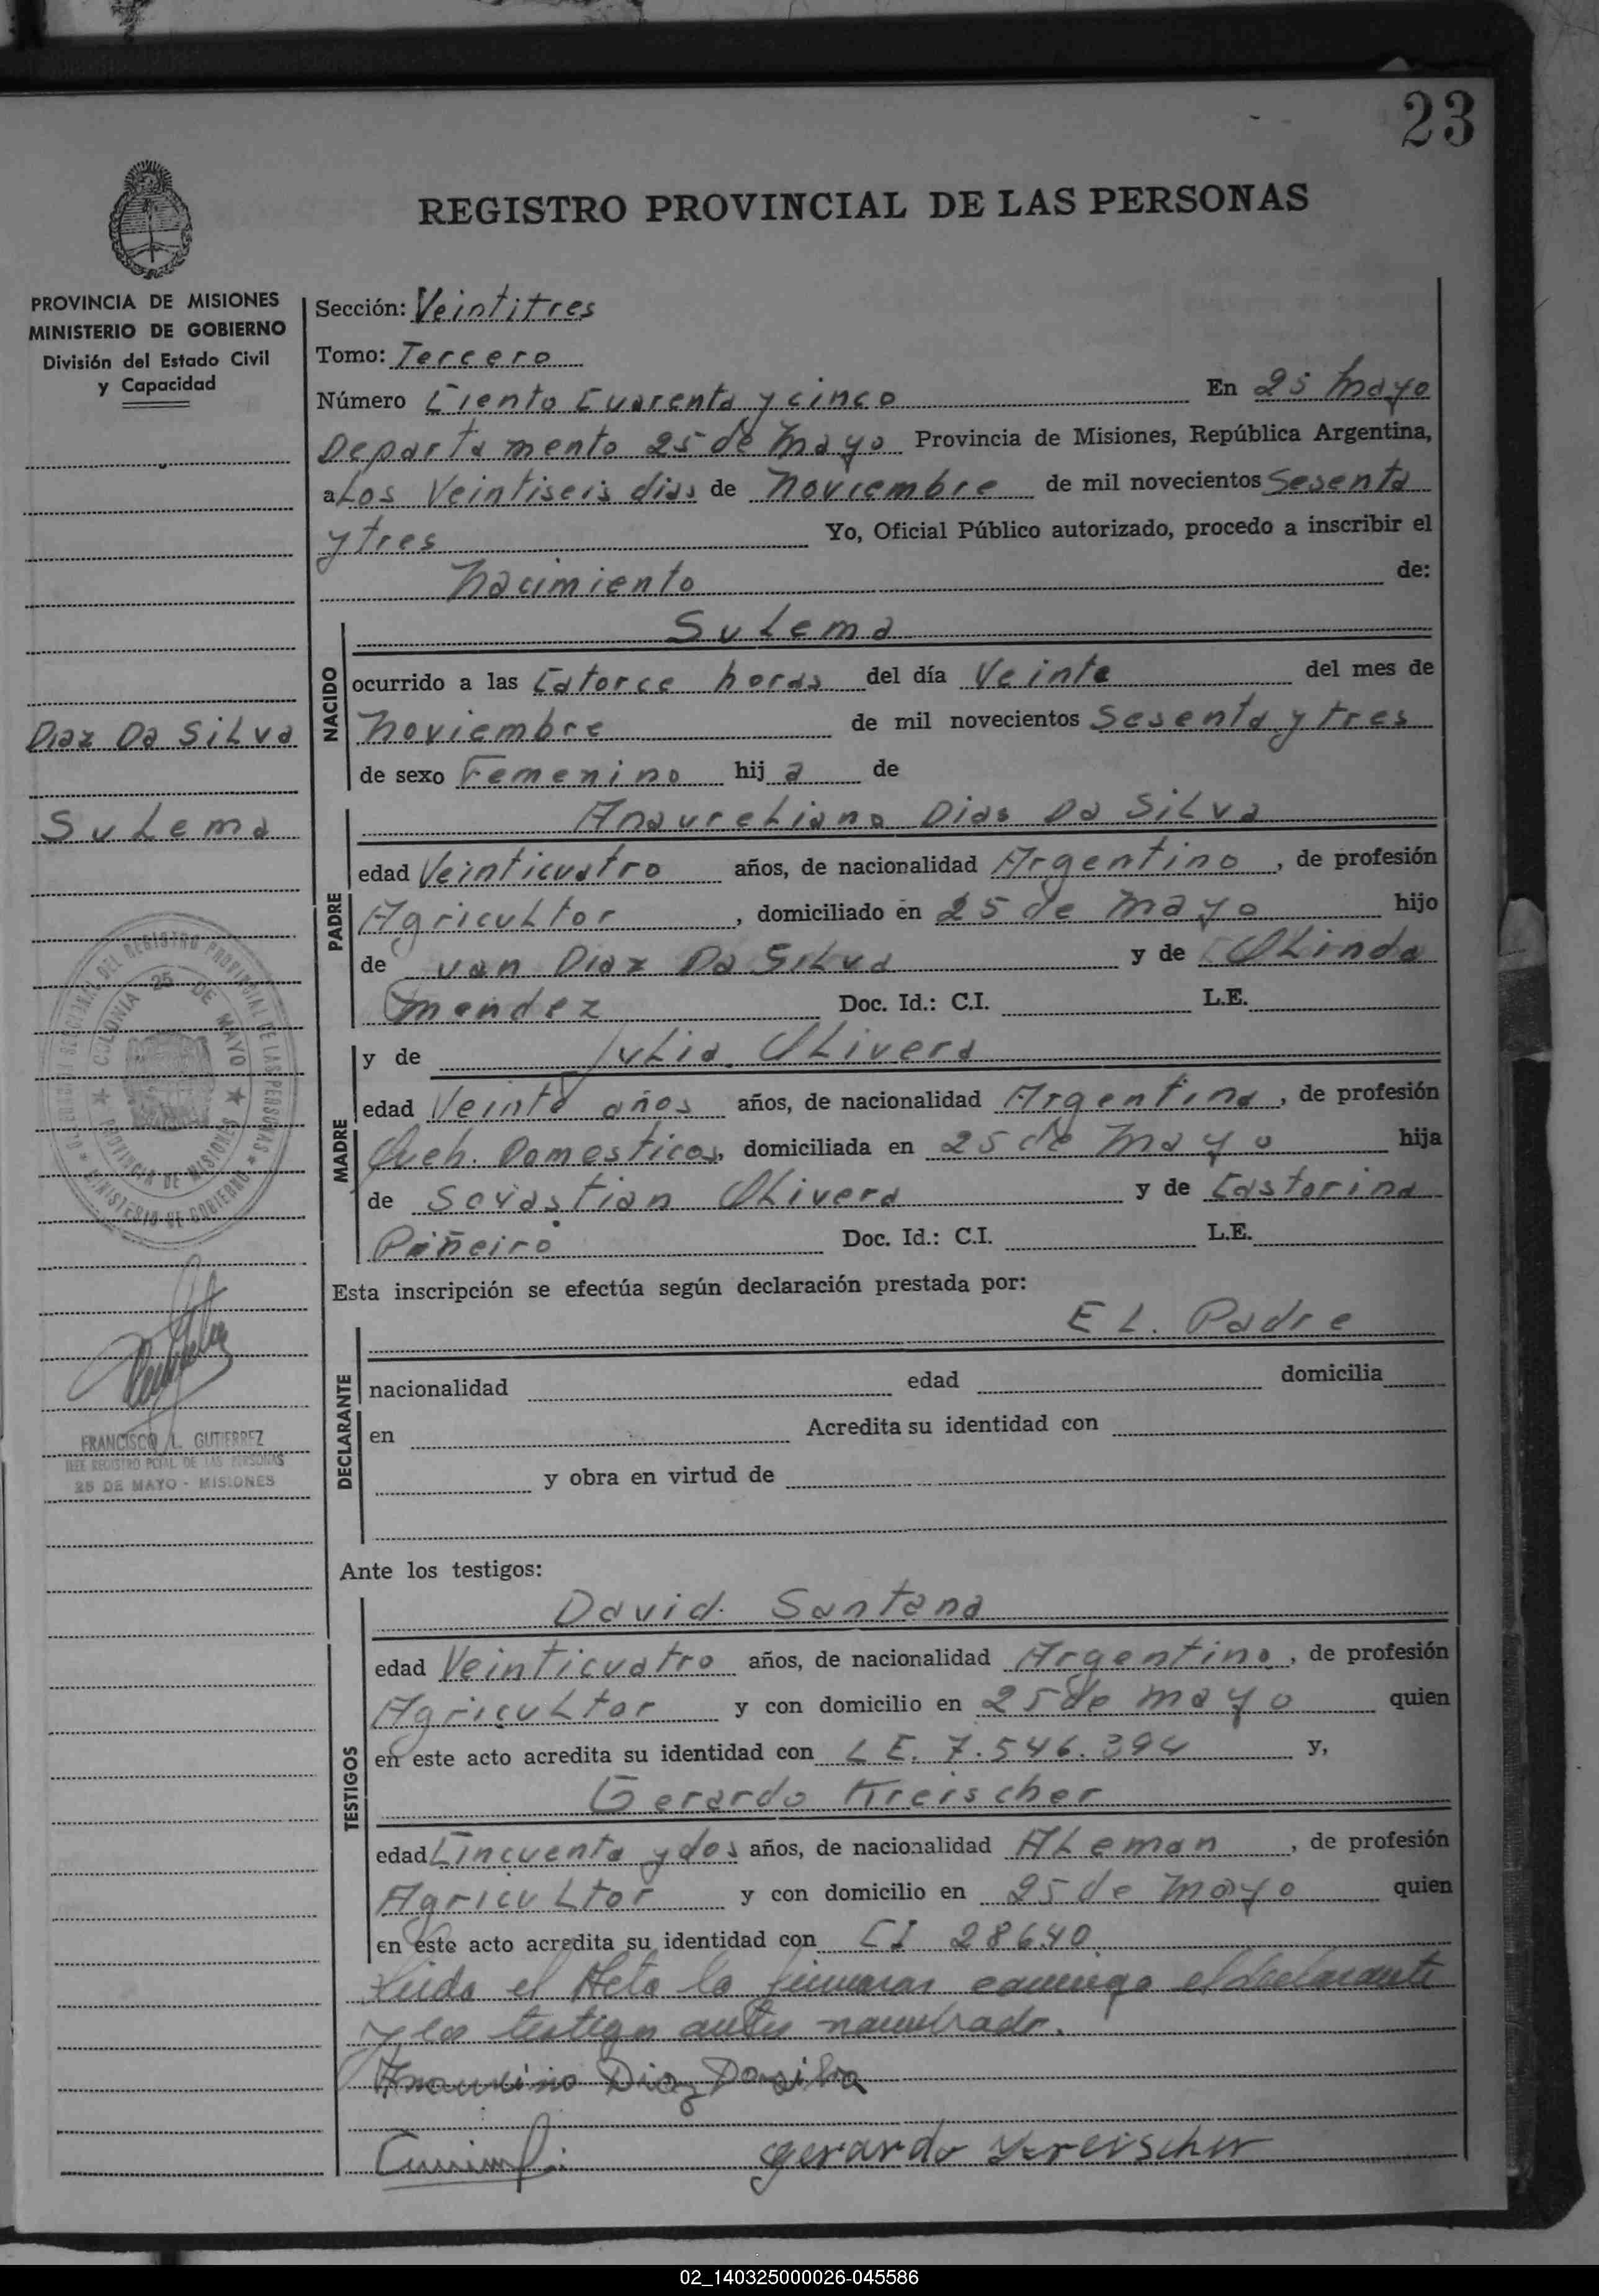 23
REGISTRO PROVINCIAL DE LAS PERSONAS
PROVINCIA DE MISIONES
MINISTERIO DE GOBIERNO
División del Estado Civil
y Capacidad
Diaz Da Silva
Sulema
REGISTRO PROVINCIAL DE LAS PERSONAS
COLONIA 25 DE MAYO
PROVINCIA DE MISIONES
MINISTERIO DE GOBIERNO
FRANCISCO L. GUTIERREZ
JEFE REGISTRO PCIAL. DE LAS PERSONAS
25 DE MAYO - MISIONES
Sección: Veintitres
Tomo: Tercero
Número Ciento Cuarenta y cinco En 25 Mayo
Departamento 25 de Mayo Provincia de Misiones, República Argentina,
a Los Veintiseis dias de Noviembre de mil novecientos Sesenta
y tres Yo, Oficial Público autorizado, procedo a inscribir el
Nacimiento de:
NACIDO
Sulema
ocurrido a las Catorce horas del día Veinte del mes de
Noviembre de mil novecientos Sesenta y tres
de sexo Femenino hij a de
PADRE
Anaureliano Dias Da Silva
edad Veinticuatro años, de nacionalidad Argentino, de profesión
Agricultor, domiciliado en 25 de Mayo hijo
de uan Diaz Da Silva y de Olinda
Mendez Doc. Id.: C.I. L.E.
MADRE
y de Julia Olivera
edad Veinte años años, de nacionalidad Argentina, de profesión
Queh. Domesticos, domiciliada en 25 de Mayo hija
de Sevastian Olivera y de Castorina
Piñeiro Doc. Id.: C.I. L.E.
Esta inscripción se efectúa según declaración prestada por:
DECLARANTE
EL. Padre
nacionalidad edad domicilia
en Acredita su identidad con
y obra en virtud de
Ante los testigos:
TESTIGOS
David Santana
edad Veinticuatro años, de nacionalidad Argentino, de profesión
Agricultor y con domicilio en 25 de Mayo quien
en este acto acredita su identidad con L E. 7.546.394 y,
Gerardo Kreischer
edad Cincuenta y dos años, de nacionalidad ALeman, de profesión
Agricultor y con domicilio en 25 de Mayo quien
en este acto acredita su identidad con CI 28640
Leida el Acta la firmaran conmigo el declarante
y los testigos antes nombrado.
Diaz Dasilva
gerardo Kreischer
02_140325000026-045586